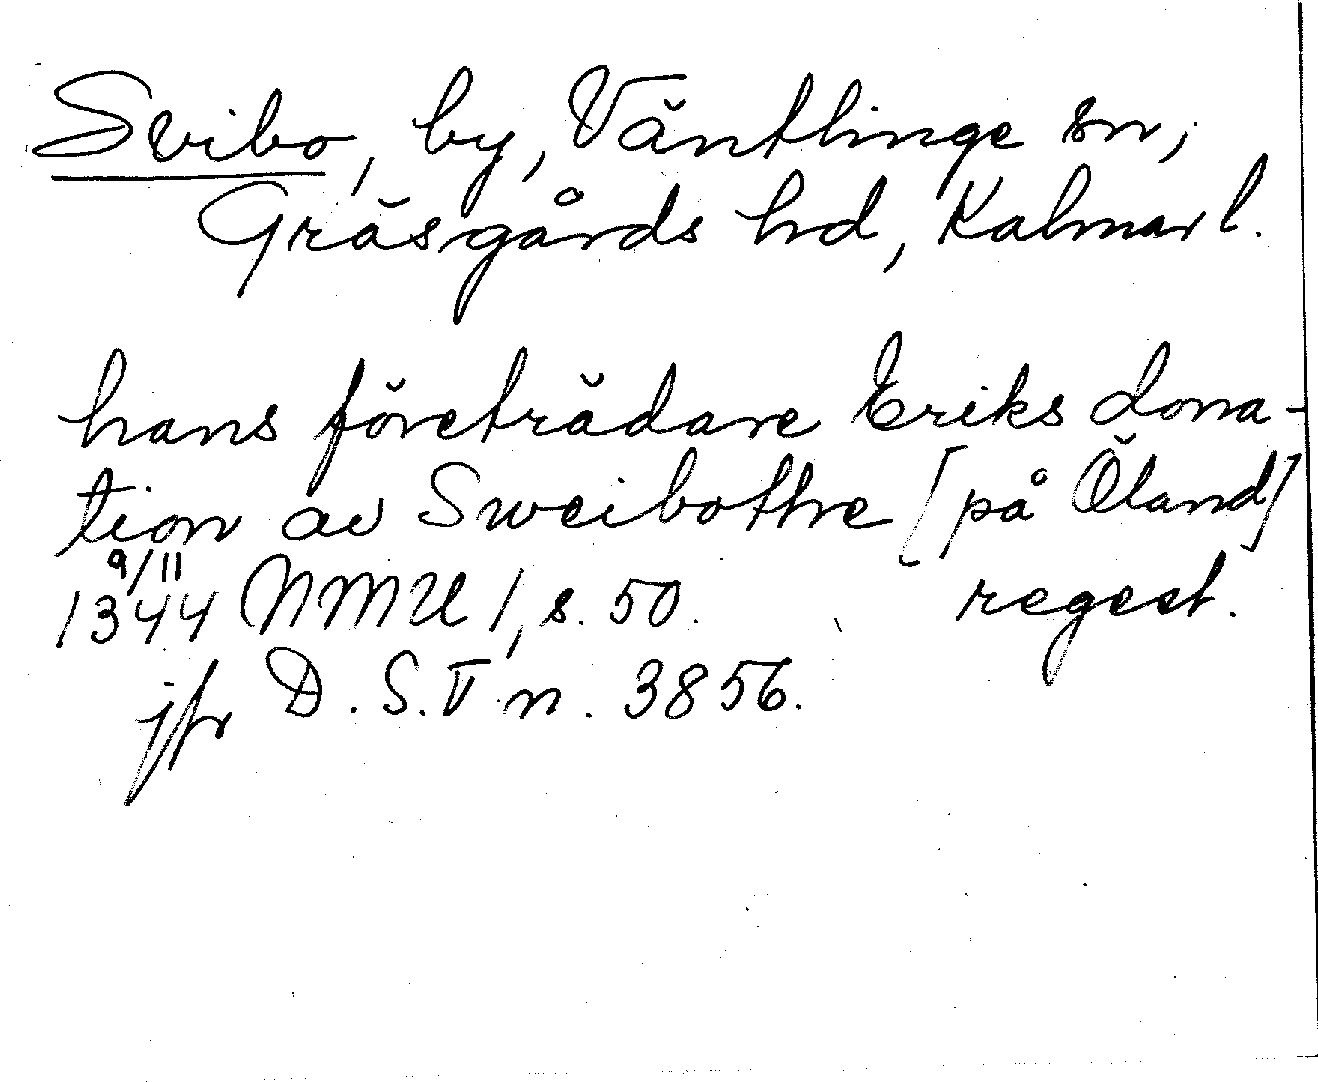 Svibo, by, Väntlinge sn,
Gräsgårds hd, Kalmar l.
hans företrädare Eriks dona-
tion av Sweibothre [på Öland]
9/11
1344 NMU 1, s. 50. regest.
jfr D. S. V n. 3856.